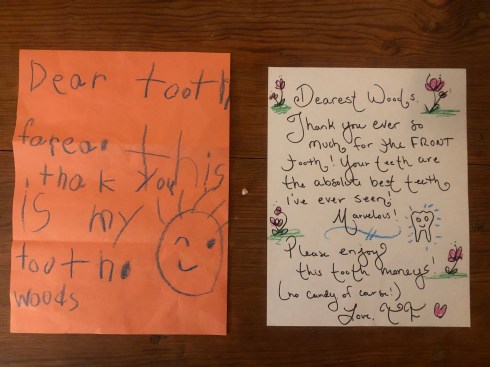 Dear tooth
farea. this
thak you
is my
tooth.
woods
Dearest Woods,
Thank you ever so
much for the FRONT
tooth! Your teeth are
the absolute best teeth
I've ever seen!
Marvelous!
Please enjoy
this tooth moneys!
(no candy of carse!)
Love, TF